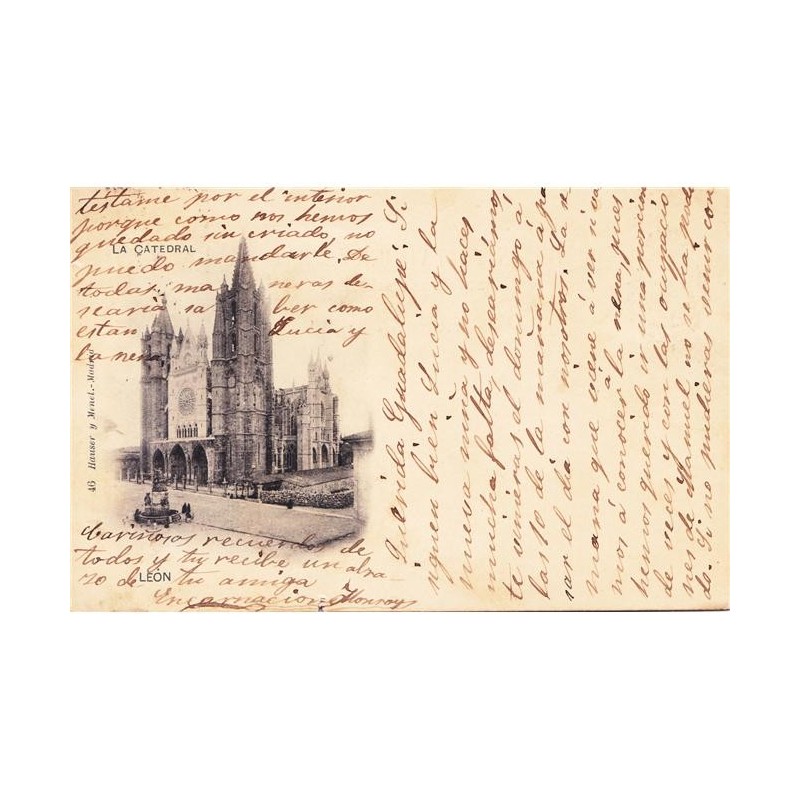 Querida Guadalupe: Si
siguen bien Lucia y la
nueva niña y no haces
mucha falta, desearíamos
te vinieras el domingo á
las 10 de la mañana á pa
sar el dia con nosotros. La
mana que viene á ver si va
mos á conocer la nena, pues
hemos querido ir una porción
de veces y con las
nes de Manuel no se ha podi
do. Si no pudieras venir con
testame por el interior
porque como nos hemos
quedado sin criado, no
puedo mandarle. De
todas ma neras de-
searia sa ber como
estan Lucia y
la nena
Cariñosos recuerdos de
todos y tu recibe un abra-
zo de tu amiga
Encarnacion Monroy
LA CATEDRAL
46 Hauser y Menet.-Madrid
LEÓN